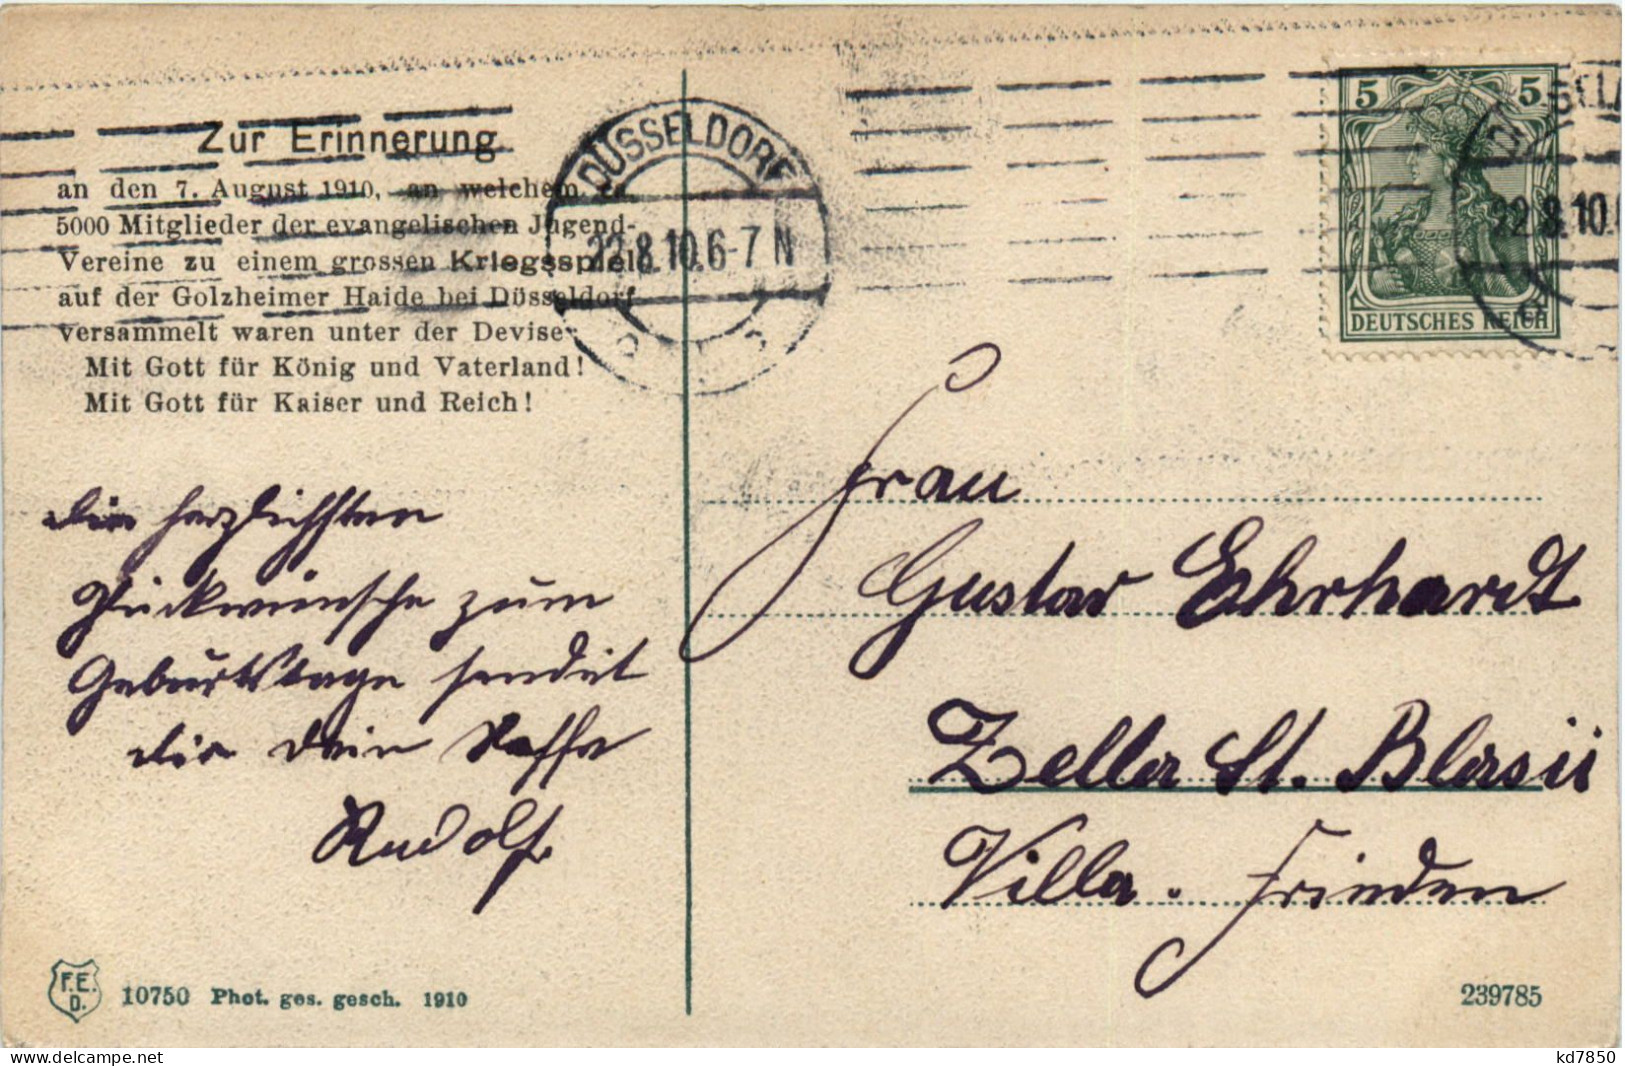 Zur Erinnerung
an den 7. August 1910, an welchem ca.
5000 Mitglieder der evangelischen Jugend-
Vereine zu einem grossen Kriegsspiel
auf der Golzheimer Haide bei Düsseldorf
versammelt waren unter der Devise:
Mit Gott für König und Vaterland!
Mit Gott für Kaiser und Reich!
DÜSSELDORF
22.8.10.6-7 N
5 5
DEUTSCHES REICH
22.8.10.
Die herzlichsten
Glückwünsche zum
Geburtstage sendet
dir dein Neffe
Rudolf.
Frau
Gustav Ehrhardt
Zella St. Blasii
Villa. Frieden
F.E.
D.
10750 Phot. ges. gesch. 1910
239785
www.delcampe.net
kd7850